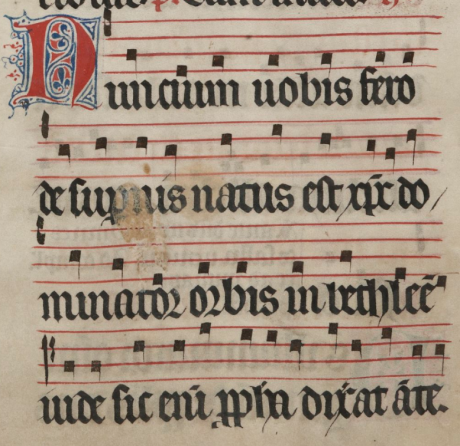 Nuncium uobis fero
de supnis natus est xp̄c do/
minator orbis in bethleē
iude sic enī ꝓpha dix̄at āte.